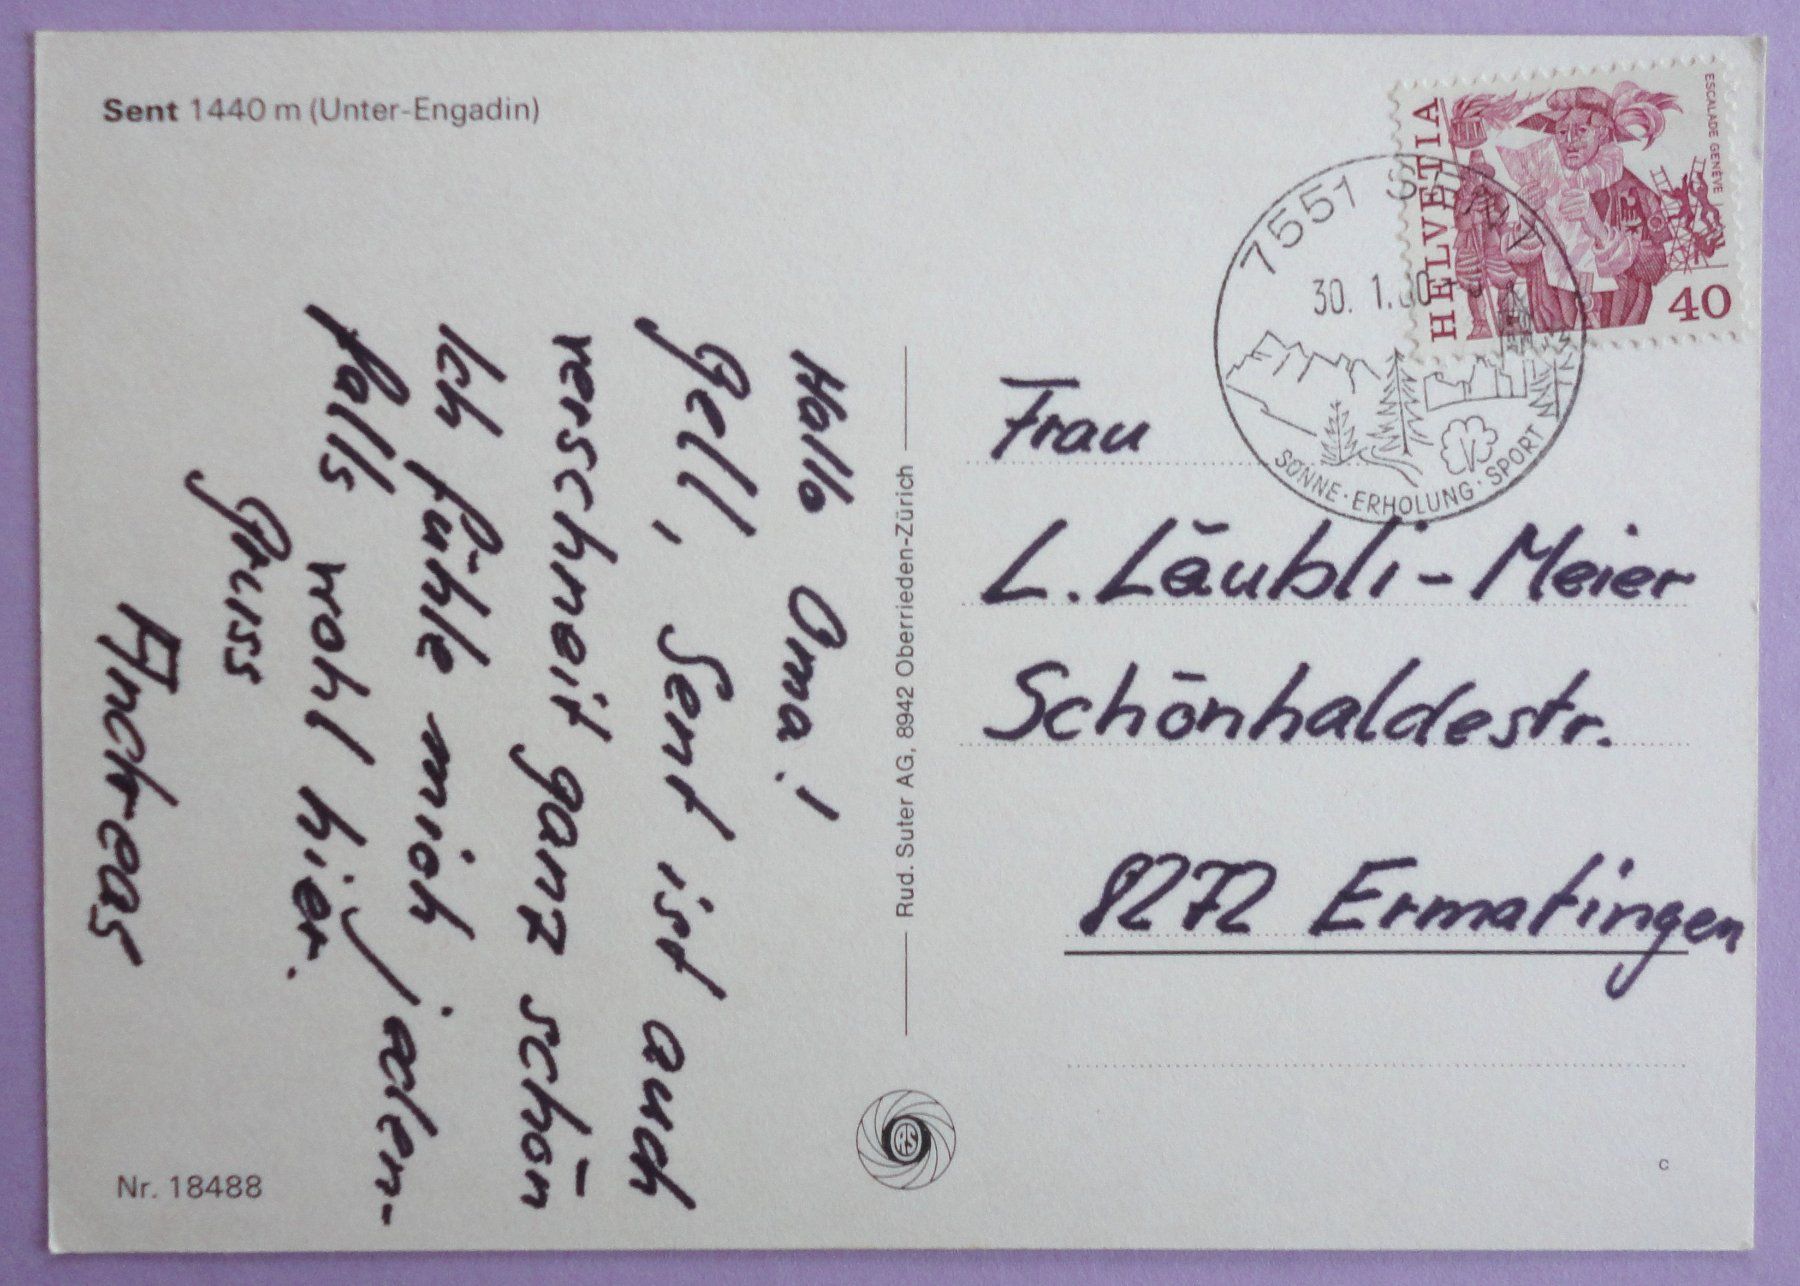 Sent 1440 m (Unter-Engadin)
Hallo Oma!
Gell, Sent ist auch
verschneit ganz schön
Ich fühle mich jeden-
falls wohl hier.
Gruss
Andreas
Nr. 18488
Rud. Suter AG, 8942 Oberrieden-Zürich
HELVETIA
ESCALADE GENÈVE
40
7551 SENT
30. 1.80
SONNE · ERHOLUNG · SPORT
Frau
L. Läubli-Meier
Schönhaldestr.
8272 Ermatingen
C